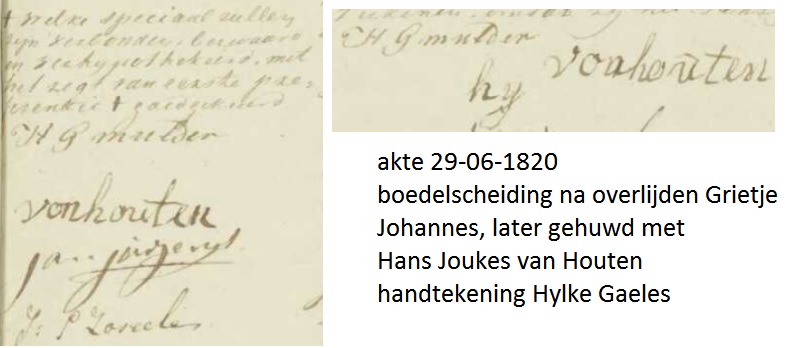 † welke speciaal zullen
zyn verbonden, bezwaard
en verhypothekeerd, met
het regt van eerste pre-
ferentie † goedgekeurd
H G mulder
vonhouten
jan
H G mulder
hy vonhouten
akte 29-06-1820
boedelscheiding na overlijden Grietje
Johannes, later gehuwd met
Hans Joukes van Houten
handtekening Hylke Gaeles